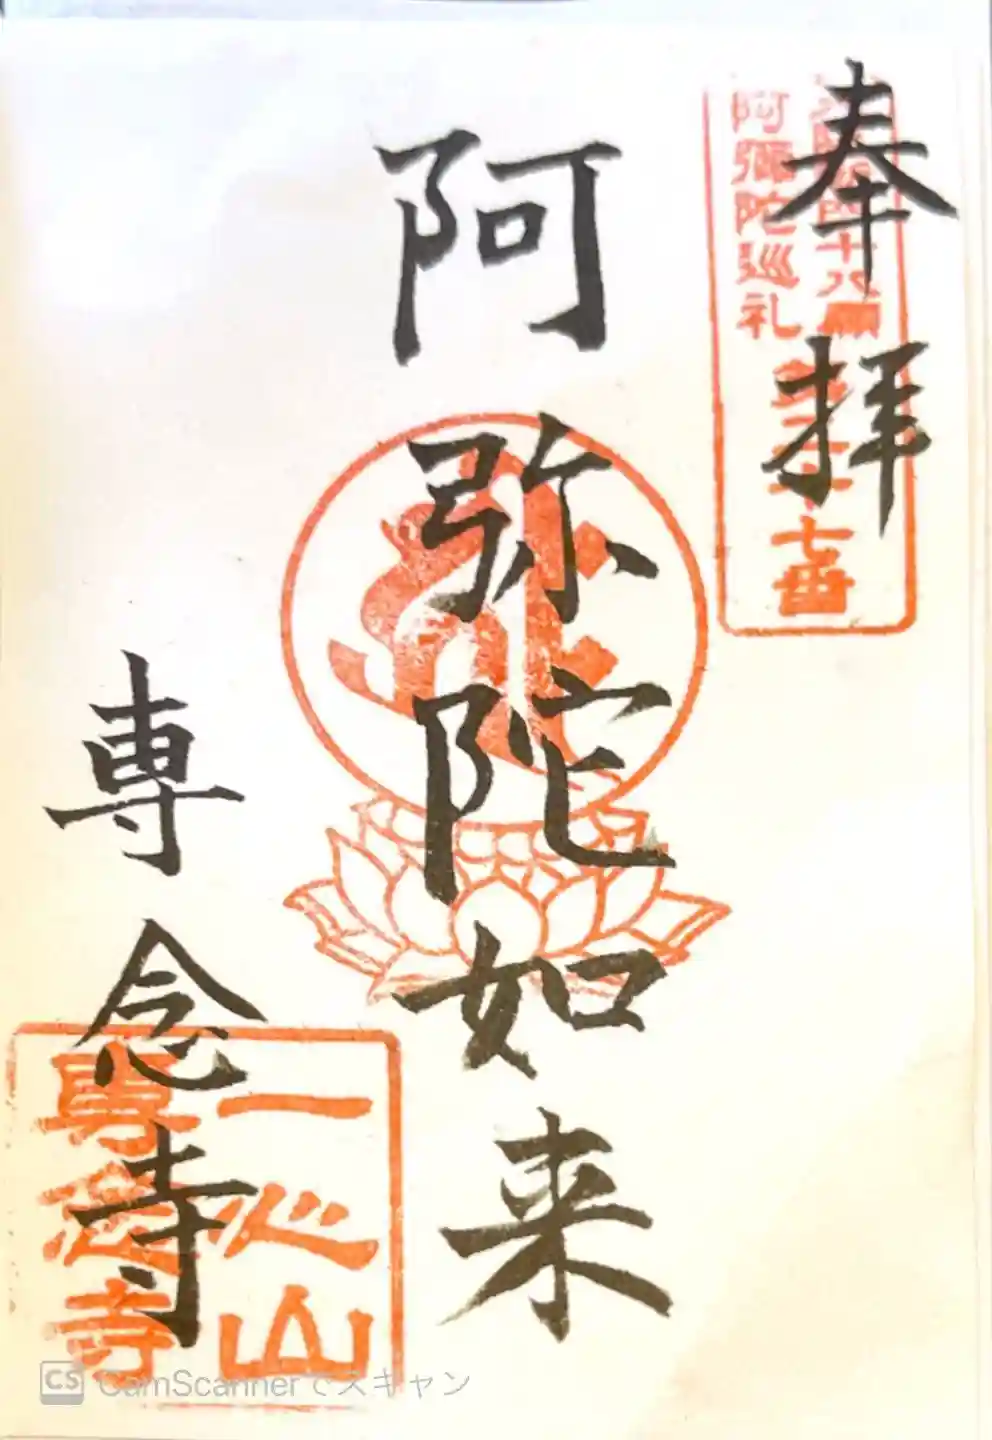 奉拝
四十八願
阿彌陀巡礼
十七番
阿弥陀如来
専念寺
一心山
專念寺
CS CamScannerでスキャン